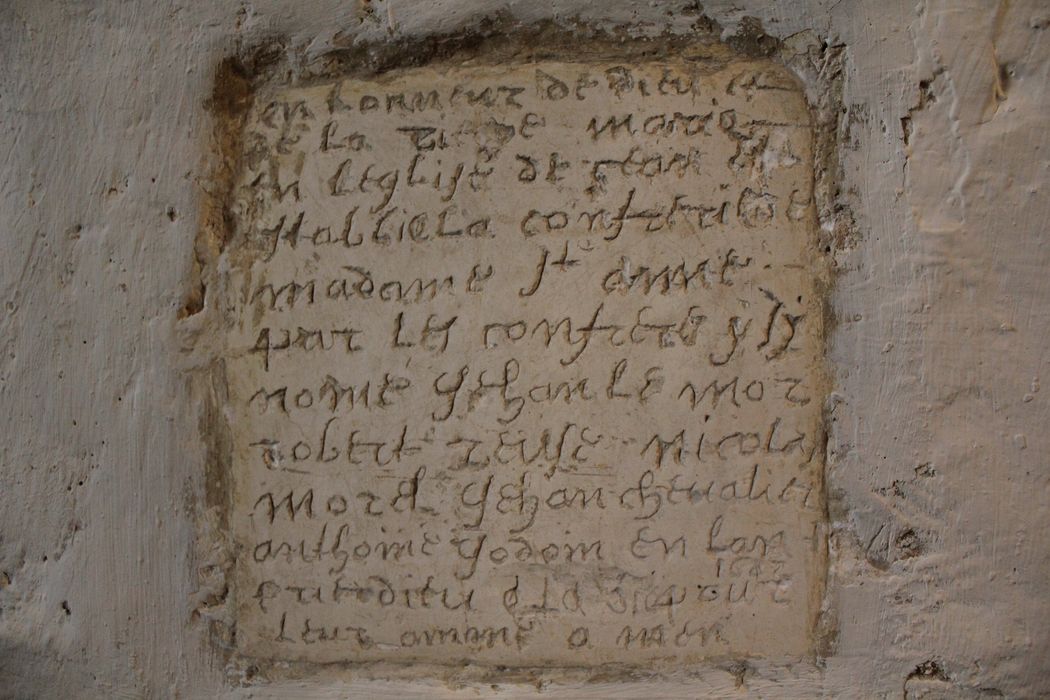 en honneur de dieu et
de la vierge marie
en leglise de cean est
stabliela confrerie de
madame st anne
par les confrere ysy
nome yehan le mor
robert reuse nicolas
morel yehan cheualier
anthoine godoin en lan
1647
pries dieu e la pour
leur amme a men